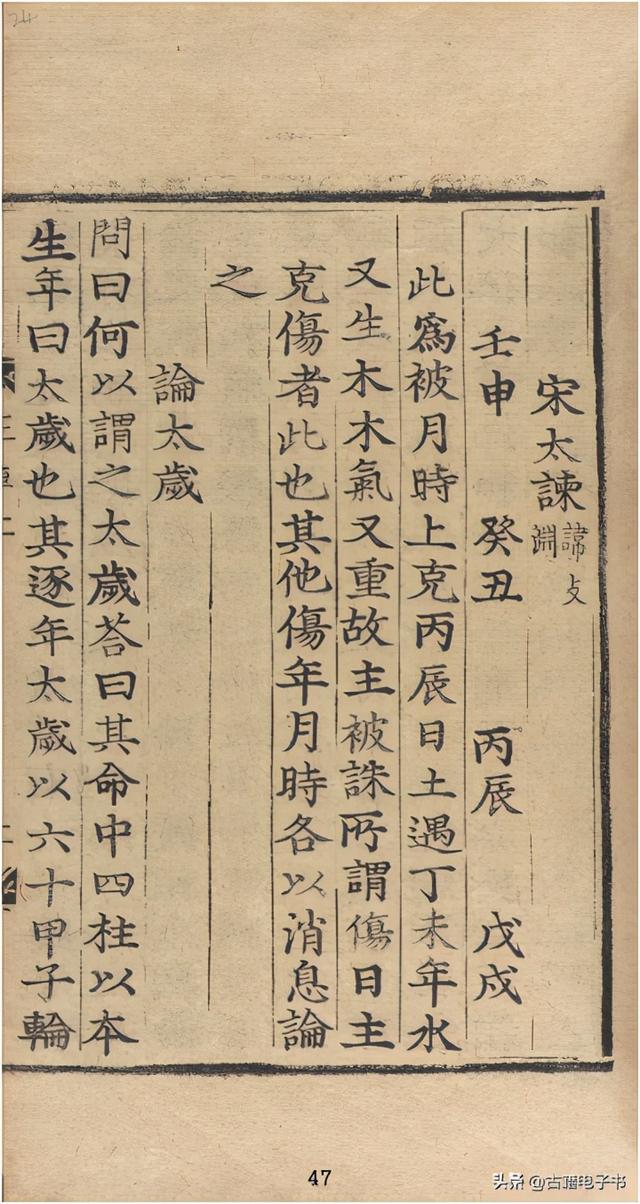 宋太諫諱友淵
壬申 癸丑 丙辰 戊戌
此爲被月時上克丙辰日土遇丁未年水
又生木木氣又重故主被誅所謂傷日主
克傷者此也其他傷年月時各以消息論
之
論太歲
問曰何以謂之太歲荅曰其命中四柱以本
生年曰太歲也其逐年太歲以六十甲子輪
47
头条@古籍电子书